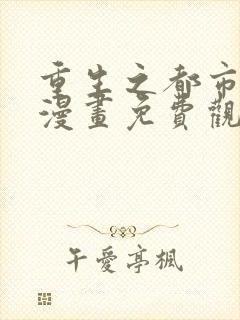 重生之都市
漫畫免費觀
午愛亭楓